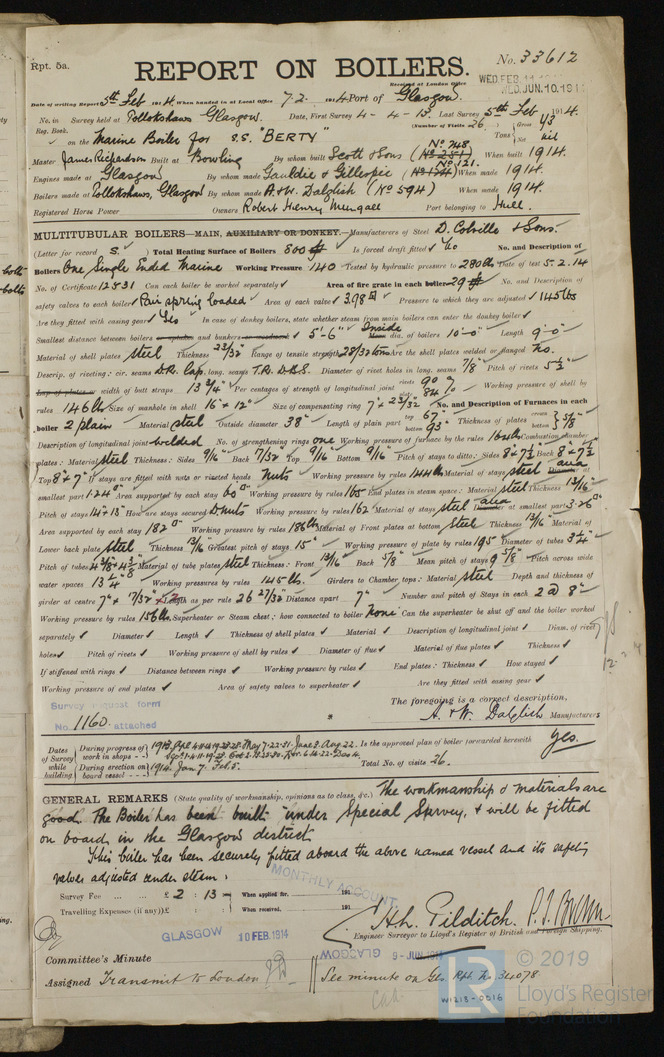 Rpt. 5a.
REPORT ON BOILERS.
No. 33612
Received at London Office WED. FEB. 11 1914
WED. JUN. 10. 191
Date of writing Report 5th Feb 1914 When handed in at Local Office 7.2. 1914 Port of Glasgow.
No. in Reg. Book. Survey held at Pollokshaws, Glasgow. Date, First Survey 4-4-13 Last Survey 5th Feb 1914.
(Number of Visits 26)
on the Marine Boiler for S.S. "BERTY" Tons Gross 43 Net nil
Master James Richardson Built at Bowling By whom built Scott & Sons (No 251) No 248 When built 1914.
Engines made at Glasgow By whom made Gauldie & Gillespie (No 124) No 121. When made 1914.
Boilers made at Pollokshaws, Glasgow By whom made A. & W. Dalglish (No 594) When made 1914.
Registered Horse Power Owners Robert Henry Mungall Port belonging to Hull.
MULTITUBULAR BOILERS—MAIN, AUXILIARY OR DONKEY.—Manufacturers of Steel D. Colville & Sons.
(Letter for record S.) Total Heating Surface of Boilers 800 Is forced draft fitted No No. and Description of
Boilers One Single Ended Marine Working Pressure 140 Tested by hydraulic pressure to 280 lbs Date of test 5.2.14
No. of Certificate 12531 Can each boiler be worked separately Area of fire grate in each boiler 29 No. and Description of
safety valves to each boiler Pair spring loaded Area of each valve 3.98 Pressure to which they are adjusted 145 lbs
Are they fitted with easing gear Yes In case of donkey boilers, state whether steam from main boilers can enter the donkey boiler
Smallest distance between boilers or uptakes and bunkers or woodwork 5'-6" Inside Mean dia. of boilers 10'-0" Length 9'-0"
Material of shell plates steel Thickness 23/32" Range of tensile strength 28/32 tons Are the shell plates welded or flanged no.
Descrip. of riveting: cir. seams D.R. Lap. long. seams T.R. D.B.S. Diameter of rivet holes in long. seams 7/8" Pitch of rivets 5 1/2"
Lap of plates or width of butt straps 13 3/4" Per centages of strength of longitudinal joint rivets 90 plate 84 % Working pressure of shell by
rules 146 lbs Size of manhole in shell 16" x 12" Size of compensating ring 7" x 23/32" No. and Description of Furnaces in each
boiler 2 plain Material steel Outside diameter 38" Length of plain part top 67" bottom 93" Thickness of plates crown bottom 5/8"
Description of longitudinal joint welded No. of strengthening rings one Working pressure of furnace by the rules 160 lbs Combustion chamber
plates: Material steel Thickness: Sides 9/16" Back 17/32" Top 9/16" Bottom 9/16" Pitch of stays to ditto: Sides 8 x 7 1/2 Back 8 x 7 1/2
Top 8" x 7" If stays are fitted with nuts or riveted heads Nuts Working pressure by rules 144 lbs Material of stays steel area Diameter at
smallest part 1.24 Area supported by each stay 60 Working pressure by rules 165 End plates in steam space: Material steel Thickness 13/16"
Pitch of stays 14" x 13" How are stays secured D. Nuts Working pressure by rules 162 Material of stays steel area Diameter at smallest part 3.26
Area supported by each stay 182 Working pressure by rules 186 lbs Material of Front plates at bottom Steel Thickness 13/16" Material of
Lower back plate Steel Thickness 13/16" Greatest pitch of stays 15" Working pressure of plate by rules 195 Diameter of tubes 3 1/4"
Pitch of tubes 4 3/8" x 4 3/8" Material of tube plates steel Thickness: Front 13/16" Back 5/8" Mean pitch of stays 9 5/8" Pitch across wide
water spaces 13 1/4" Working pressures by rules 145 lbs. Girders to Chamber tops: Material steel Depth and thickness of
girder at centre 7" x 17/32" x 2 Length as per rule 26 27/32" Distance apart 7" Number and pitch of Stays in each 2 @ 8"
Working pressure by rules 156 lbs. Superheater or Steam chest; how connected to boiler None Can the superheater be shut off and the boiler worked
separately Diameter Length Thickness of shell plates Material Description of longitudinal joint Diam. of rivet
holes Pitch of rivets Working pressure of shell by rules Diameter of flue Material of flue plates Thickness
If stiffened with rings Distance between rings Working pressure by rules End plates: Thickness How stayed
Working pressure of end plates Area of safety valves to superheater Are they fitted with easing gear
Survey request form
No. 1160. attached
The foregoing is a correct description,
A. & W. Dalglish Manufacturers
Dates of Survey while building
During progress of work in shops - - 1913. Apl. 4.11.14.23.28. May 7.22.31. June 3. Aug. 22.
Is the approved plan of boiler forwarded herewith Yes.
During erection on board vessel - - - 1914. Jan 7. Feb. 5. Total No. of visits 26.
GENERAL REMARKS (State quality of workmanship, opinions as to class, &c.) The workmanship & materials are
good. The Boiler has been built under Special Survey, & will be fitted
on board, in the Glasgow district.
This boiler has been securely fitted aboard the above named vessel and its safety
valves adjusted under steam.
MONTHLY ACCOUNT.
Survey Fee ... ... £ 2 : 13 : When applied for, 191
Travelling Expenses (if any) £ : : When received, 191
H. Pilditch.
Engineer Surveyor to Lloyd's Register of British and Foreign Shipping.
GLASGOW 10 FEB. 1914
GLASGOW 9-JUN.191
Committee's Minute
Assigned Transmit to London
See minute on Gls. Rpt. No. 34078
© 2019
Lloyd's Register
Foundation
LR
W1218-0016